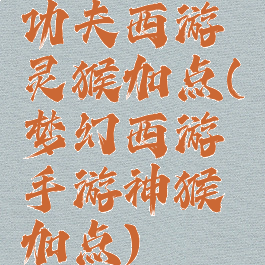 功夫西游
灵猴加点(
梦幻西游
手游神猴
加点)